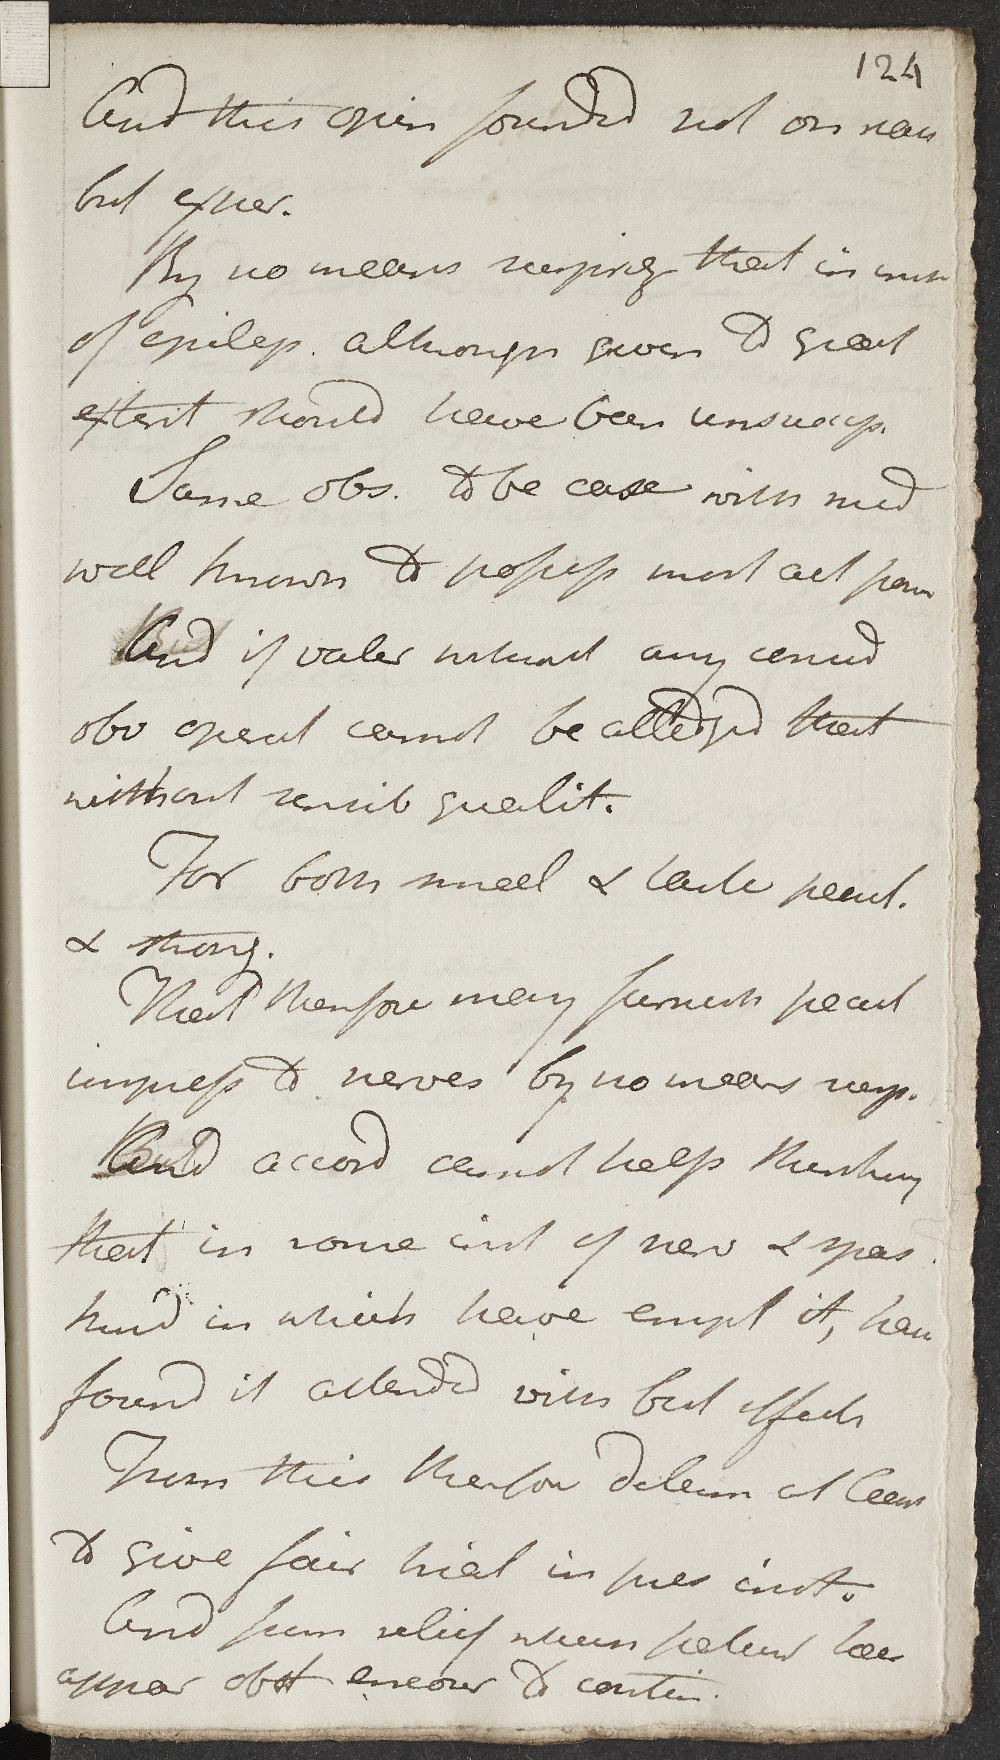 124
And this opin founded not on reas
but exper.
By no means surprising that in
of epilep. although given to great
extent should have been unsucces.
Same obs. to be case with med
well known to possess most act pow
And if valer without any
obv operat cannot be alledged that
without sensib qualit.
For both smell & taste pecul.
& strong.
That therefore may furnish pecul
impress to nerves by no means surp.
And accord cannot help thinking
that in some inst of nerv & spas
kind in which have empl it, have
found it attended with best effects
From this therefore determ at least
to give fair trial in pres inst.
And from relief which patient has
appear obt encour to contin.